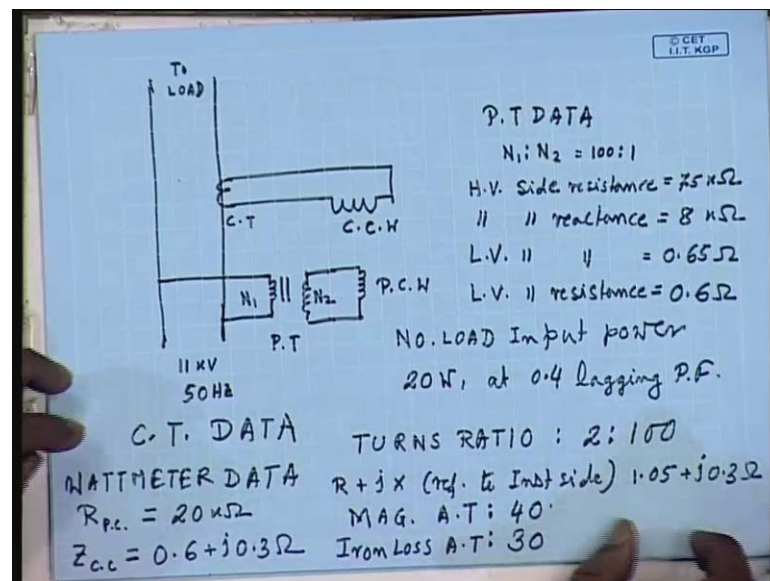 © CET
I.I.T. KGP
To
LOAD
C.T
C.C.W
N1
N2
P.C.W
P.T
11 KV
50Hz
P.T DATA
N1 : N2 = 100:1
H.V. Side resistance = 75 KΩ
" " reactance = 8 KΩ
L.V. " " = 0.65Ω
L.V. " resistance = 0.6Ω
NO. LOAD Input power
20W, at 0.4 lagging P.F.
C. T. DATA
TURNS RATIO : 2 : 100
R + jX (ref. to Inst side) 1.05 + j0.3Ω
MAG. A.T : 40
Iron Loss A.T : 30
WATTMETER DATA
Rp.c. = 20 KΩ
Zc.c = 0.6 + j0.3Ω